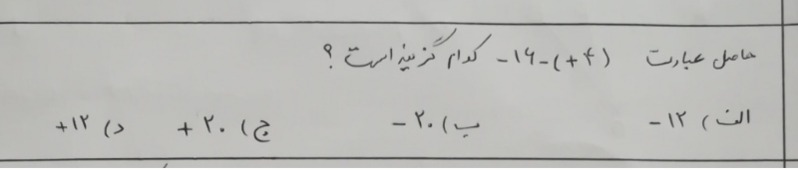 حاصل عبارت (+۴)-۱۶- کدام گزینه است ؟
الف) ۱۲- ب) ۲۰- ج) ۲۰+ د) ۱۲+